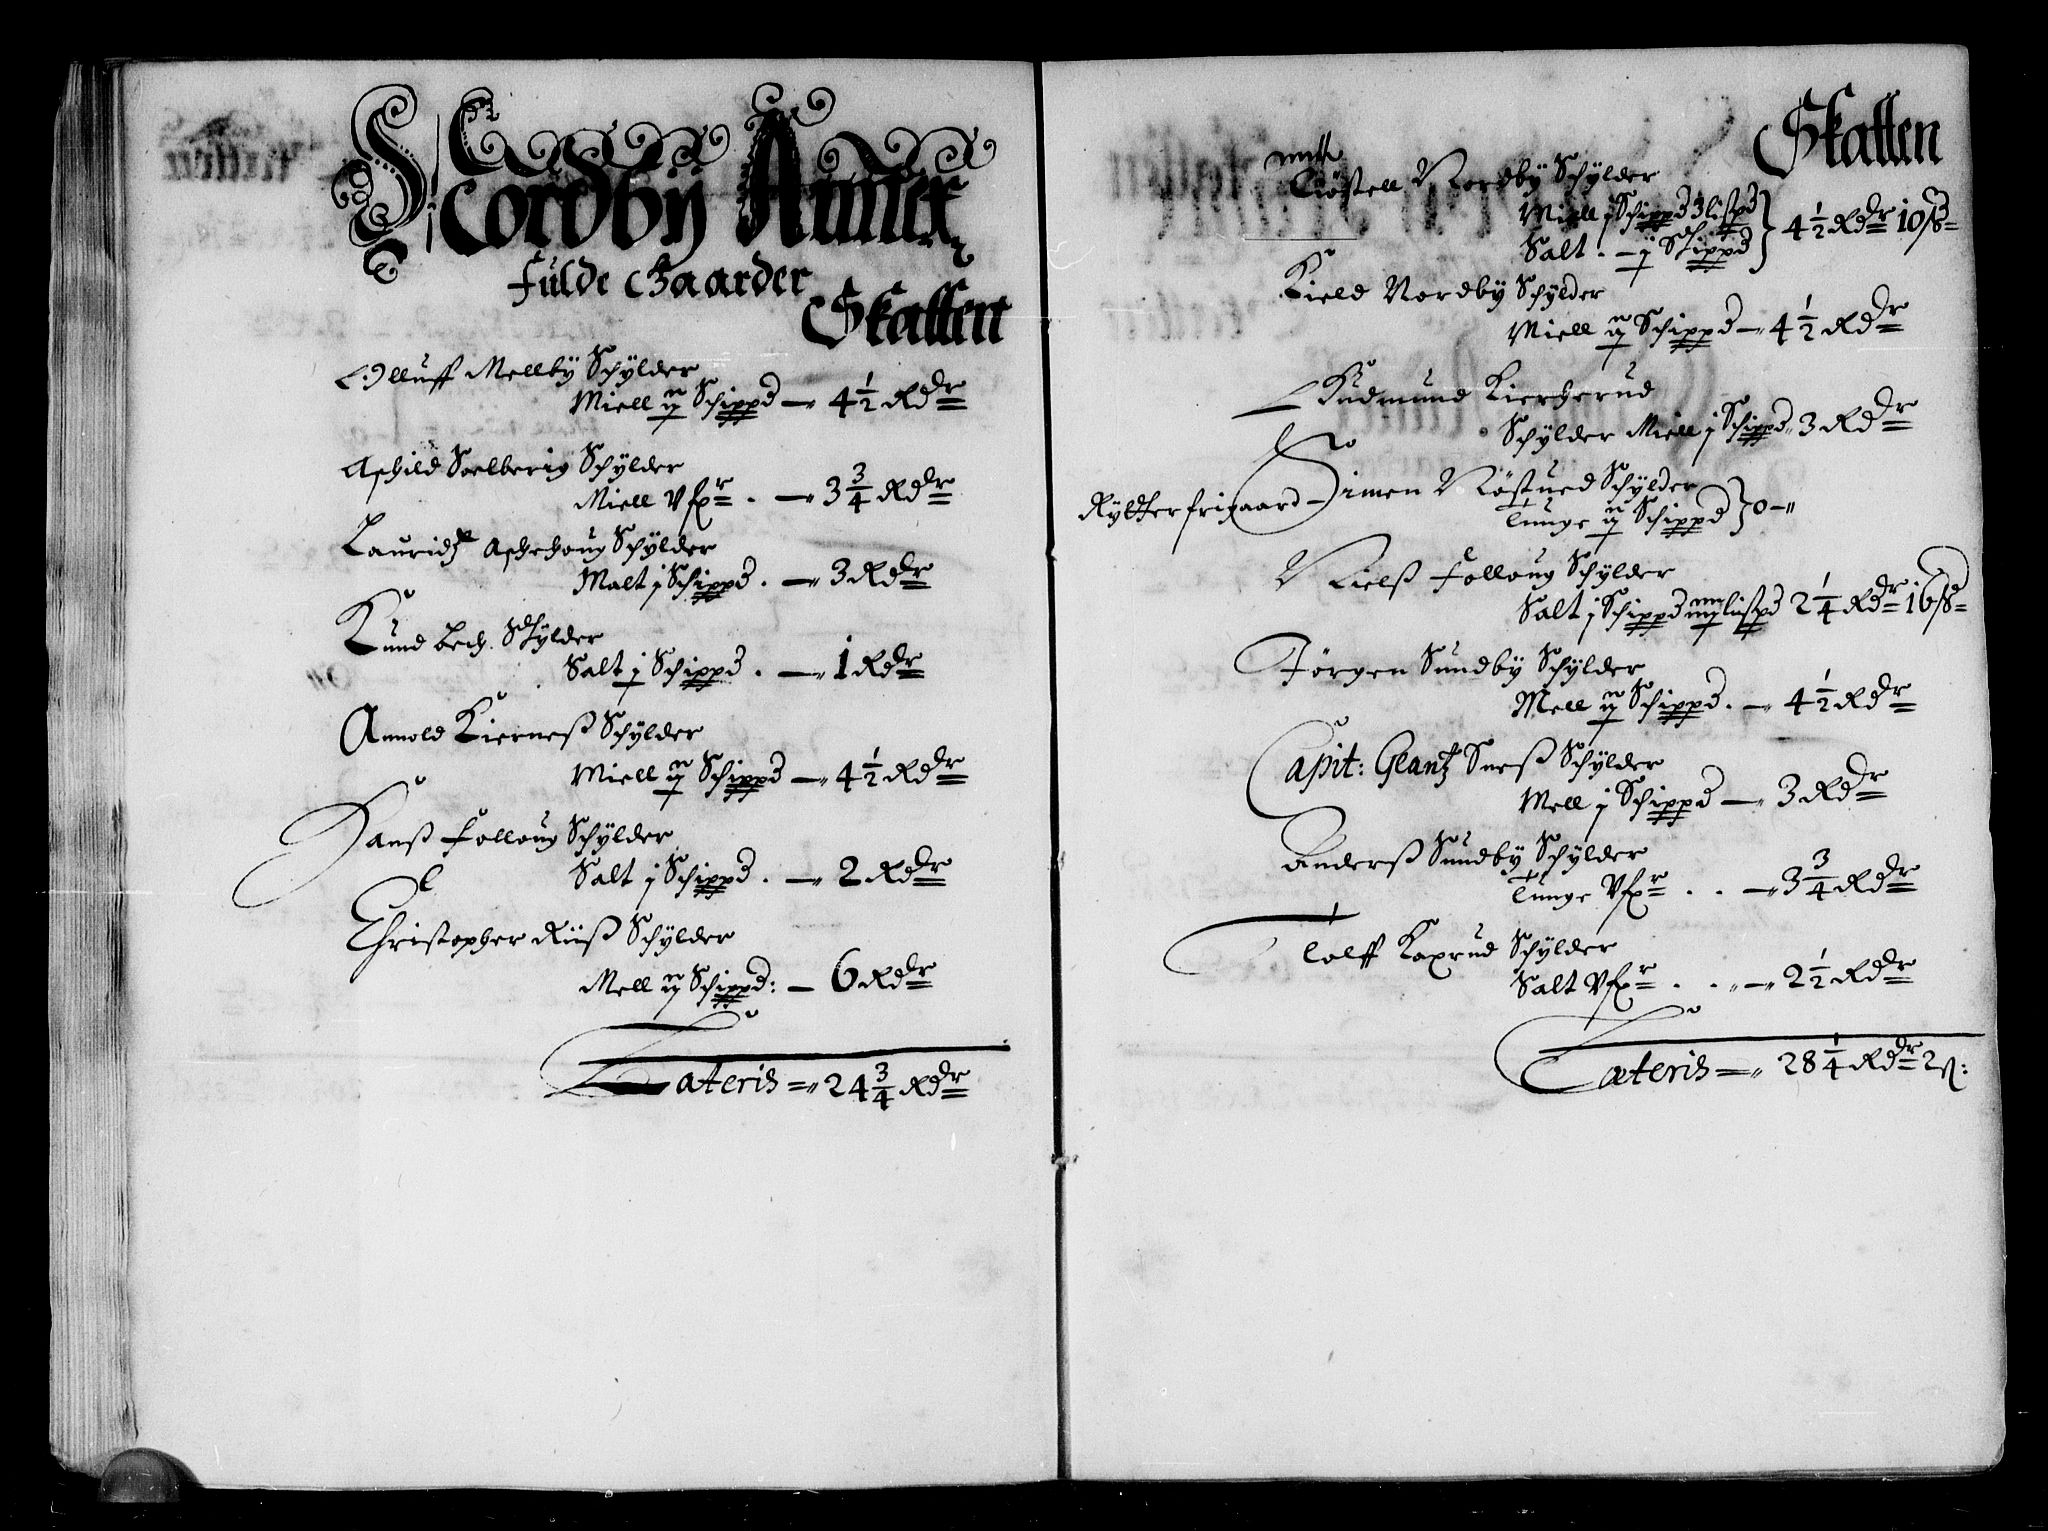 Nordby Annex
fulde Gaarder
Skatten
Olluff Mellby Schÿlder
Miell ij Schippd — 4 1/2 Rdr
Aschild Soelberig Schÿlder
Miell Vfxr . — 3 3/4 Rdr
Lauridz Aschehoug Schÿlder
Malt j Schippd . — 3 Rdr
Knud Bech. Schÿlder
Salt j Schippd . — 1 Rdr
Arnold Kierneß Schÿlder
Miell ij Schippd — 4 1/2 Rdr
Hanß folloug Schÿlder
Salt j Schippd . — 2 Rdr
Christopher Riiß Schÿlder
Mell ij Schippd: — 6 Rdr
Lateris = 24 3/4 Rdr
Skatten
Kiöstell Nordbÿ Schÿlder
Miell j Schippd 3 lispd
Salt . — j Schippd } 4 1/2 Rdr 10 ß
Kield Nordbÿ Schÿlder
Miell ij Schippd — 4 1/2 Rdr
Gudmund Kiercherud
Schÿlder Miell j Schippd 3 Rdr
Rytter frigaard Simen Nöstued Schÿlder
tunge ij Schippd } 0 —
Nielß folloug Schÿlder
Salt j Schippd iiij lispd 2 1/4 Rdr 16 ß
Jörgen Sundbÿ Schÿlder
Mell ij Schippd . — 4 1/2 Rdr
Capit: Glantz Sneß Schÿlder
Mell j Schippd — 3 Rdr
Anderß Sundbÿ Schÿlder
tunge Vfxr . . — 3 3/4 Rdr
Tolff Kaxrud Schÿlder
Salt Vfxr . . — 2 1/2 Rdr
Lateris = 28 1/4 Rdr 2 ß: